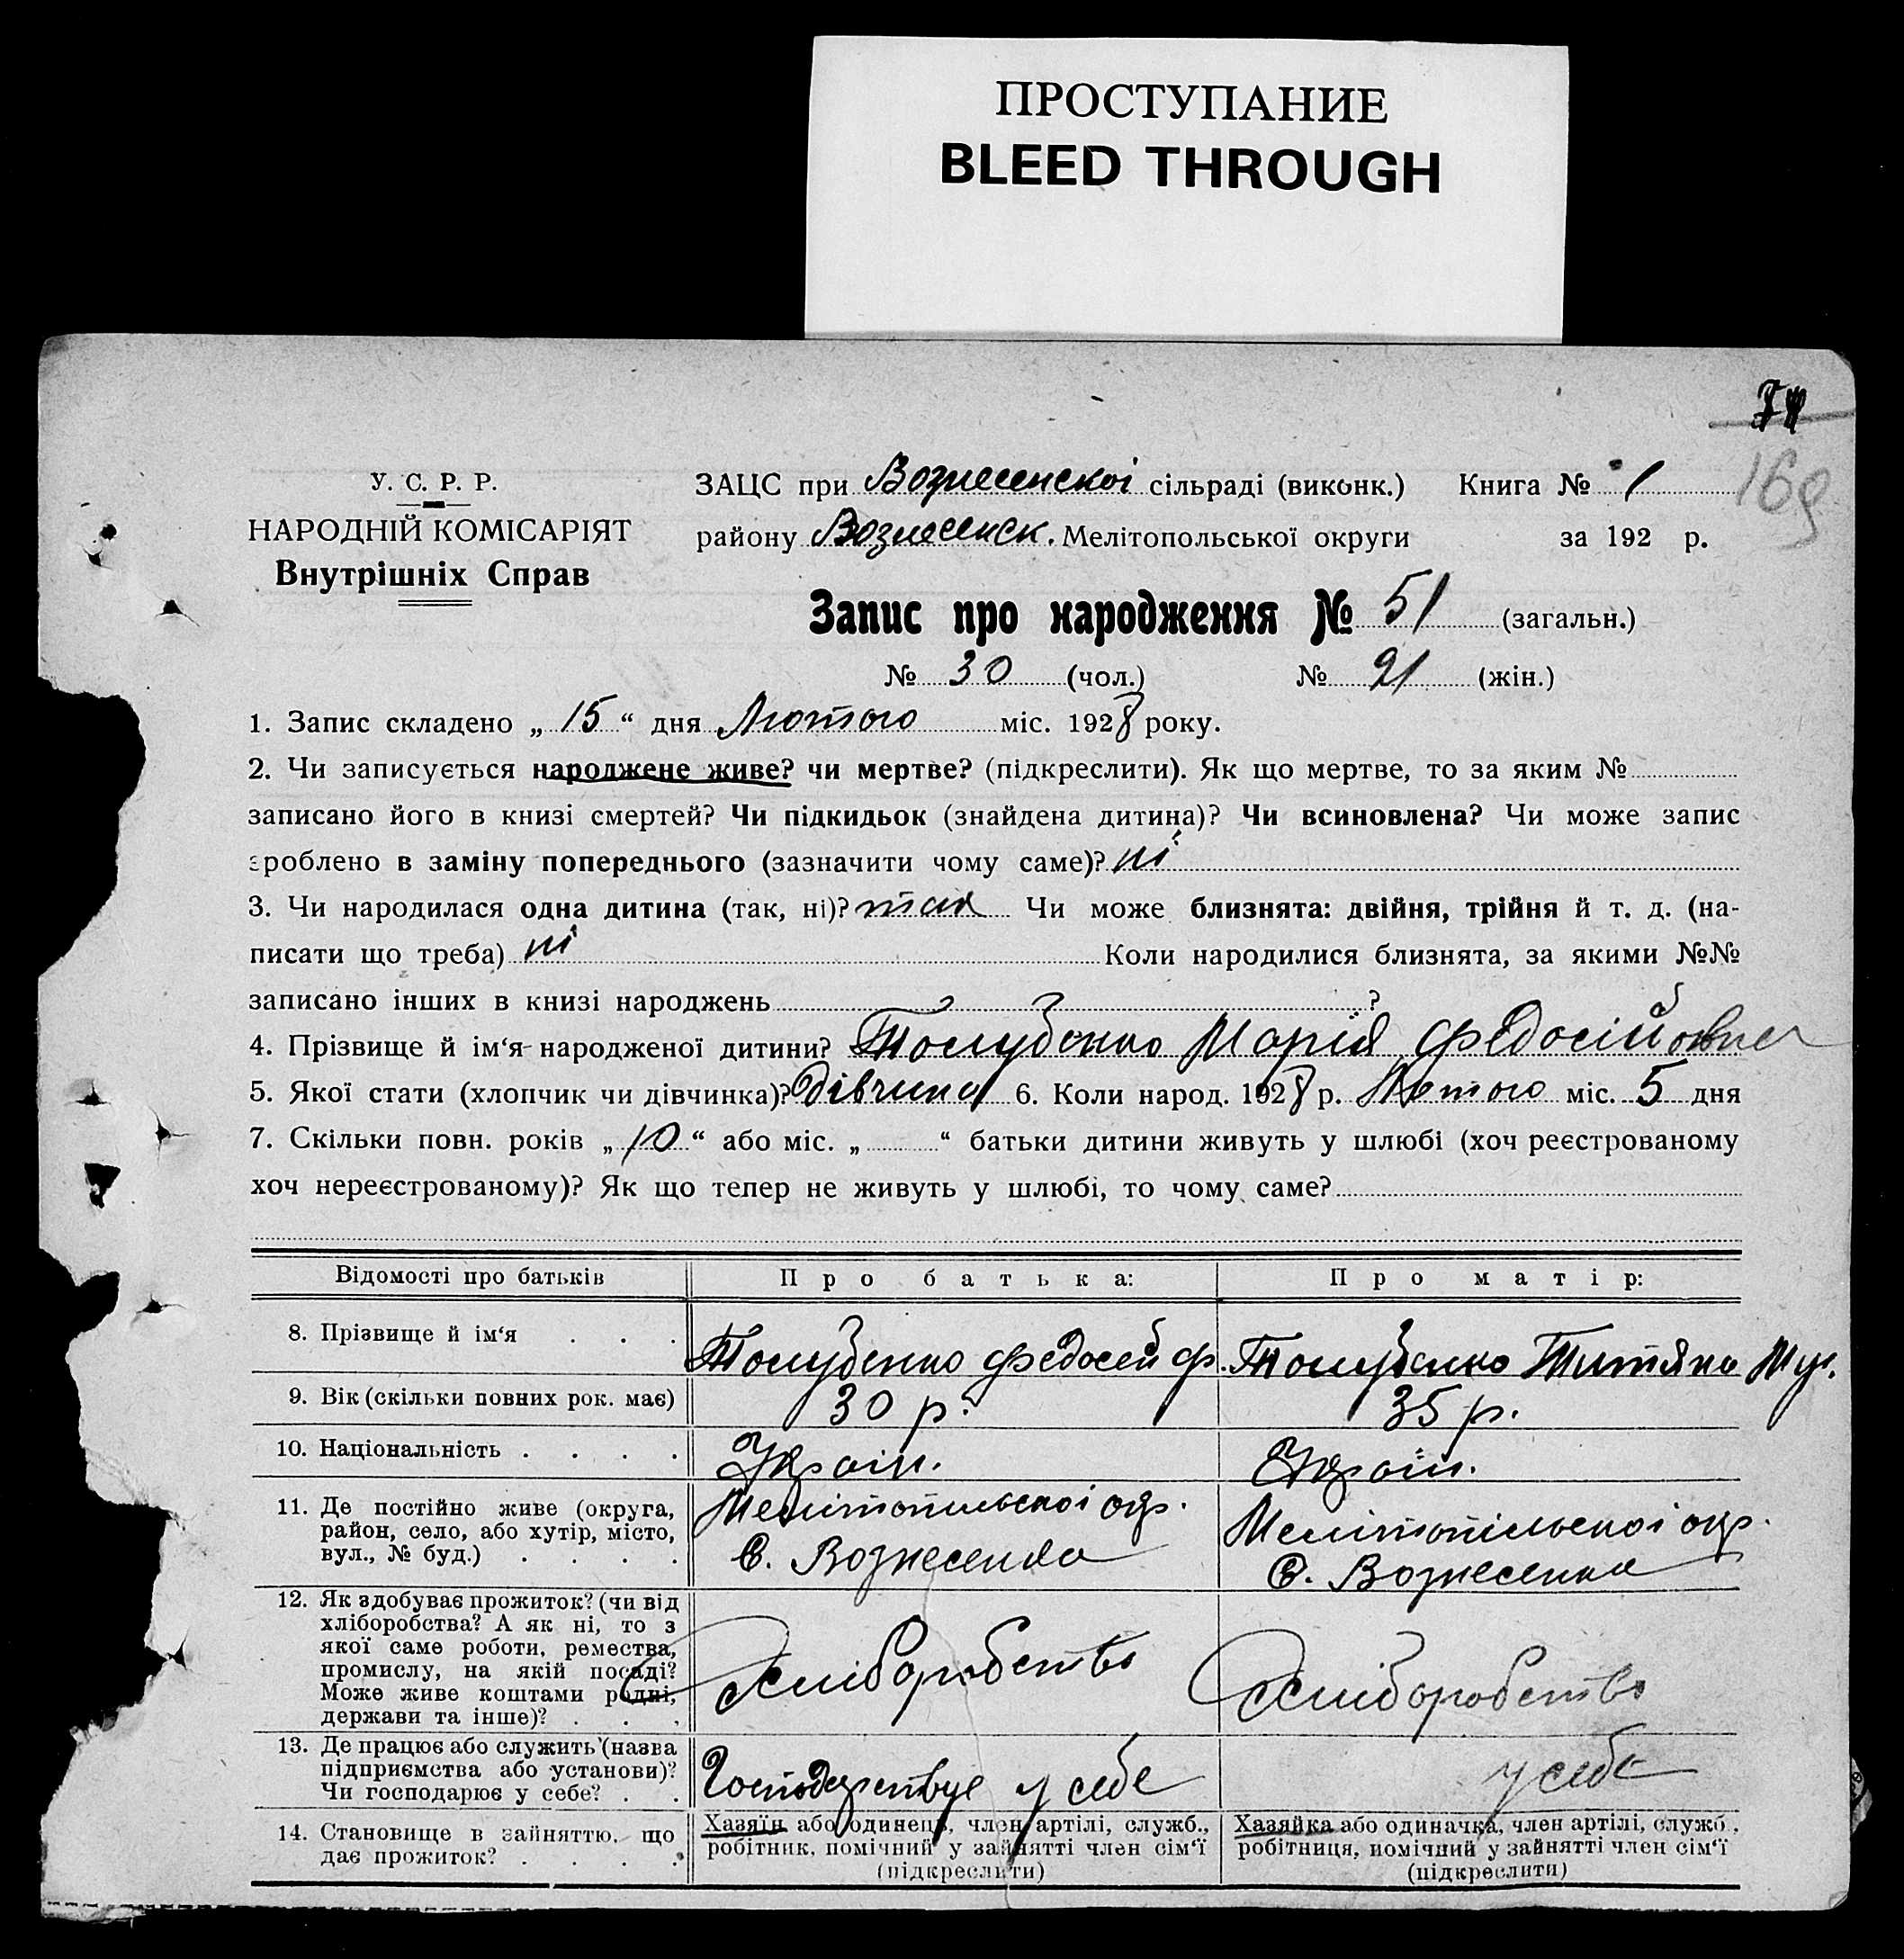 ПРОСТУПАНИЕ
BLEED THROUGH
169
У. С. Р. Р.
НАРОДНІЙ КОМІСАРІЯТ
Внутрішніх Справ
ЗАЦС при Вознесенскоі сільраді (виконк.) Книга № 1
району Вознесенск. Мелітопольської округи за 192 р.
Запис про народження № 51 (загальн.)
№ 30 (чол.) № 21 (жін.)
1. Запис складено „ 15 “ дня Лютого міс. 1928 року.
2. Чи записується народжене живе? чи мертве? (підкреслити). Як що мертве, то за яким №
записано його в книзі смертей? Чи підкидьок (знайдена дитина)? Чи всиновлена? Чи може запис
зроблено в заміну попереднього (зазначити чому саме)? ні
3. Чи народилася одна дитина (так, ні)? так Чи може близнята: двійня, трійня й т. д. (на-
писати що треба) ні Коли народилися близнята, за якими №№
записано інших в книзі народжень ?
4. Прізвище й ім‘я народженої дитини? Толубенко Марія Федосійовна
5. Якої стати (хлопчик чи дівчинка)? Дівчина 6. Коли народ. 1928 р. Лютого міс. 5 дня
7. Скільки повн. років „ 10 “ або міс. „ “ батьки дитини живуть у шлюбі (хоч реєстрованому
хоч нереєстрованому)? Як що тепер не живуть у шлюбі, то чому саме?
Відомості про батьків Про батька: Про матір:
8. Прізвище й ім‘я . . . Толубенко Федосей Ф. Толубенко Титяна
9. Вік (скільки повних рок. має) 30 р. 35 р.
10. Національність . . . . Україн. Україн.
11. Де постійно живе (округа,
район, село, або хутір, місто,
вул., № буд.) . . . .
Мелітопильскоі окр.
С. Вознесенка
Мелітопільскоі окр.
С. Вознесенка
12. Як здобуває прожиток? (чи від
хліборобства? А як ні, то з
якої саме роботи, ремества,
промислу, на якій посаді?
Може живе коштами родні,
держави та інше)? . . .
Хліборобство
Хліборобство
13. Де працює або служить (назва
підприємства або установи)?
Чи господарює у себе? . .
Господарствує у себе
у себе
14. Становище в зайняттю, що
дає прожиток? . . . .
Хазяїн або одинець, член артілі, служб.,
робітник, помічний у зайнятті член сім‘ї
(підкреслити)
Хазяйка або одиначка, член артілі, служб.,
робітниця, помічний у зайнятті член сім‘ї
(підкреслити)